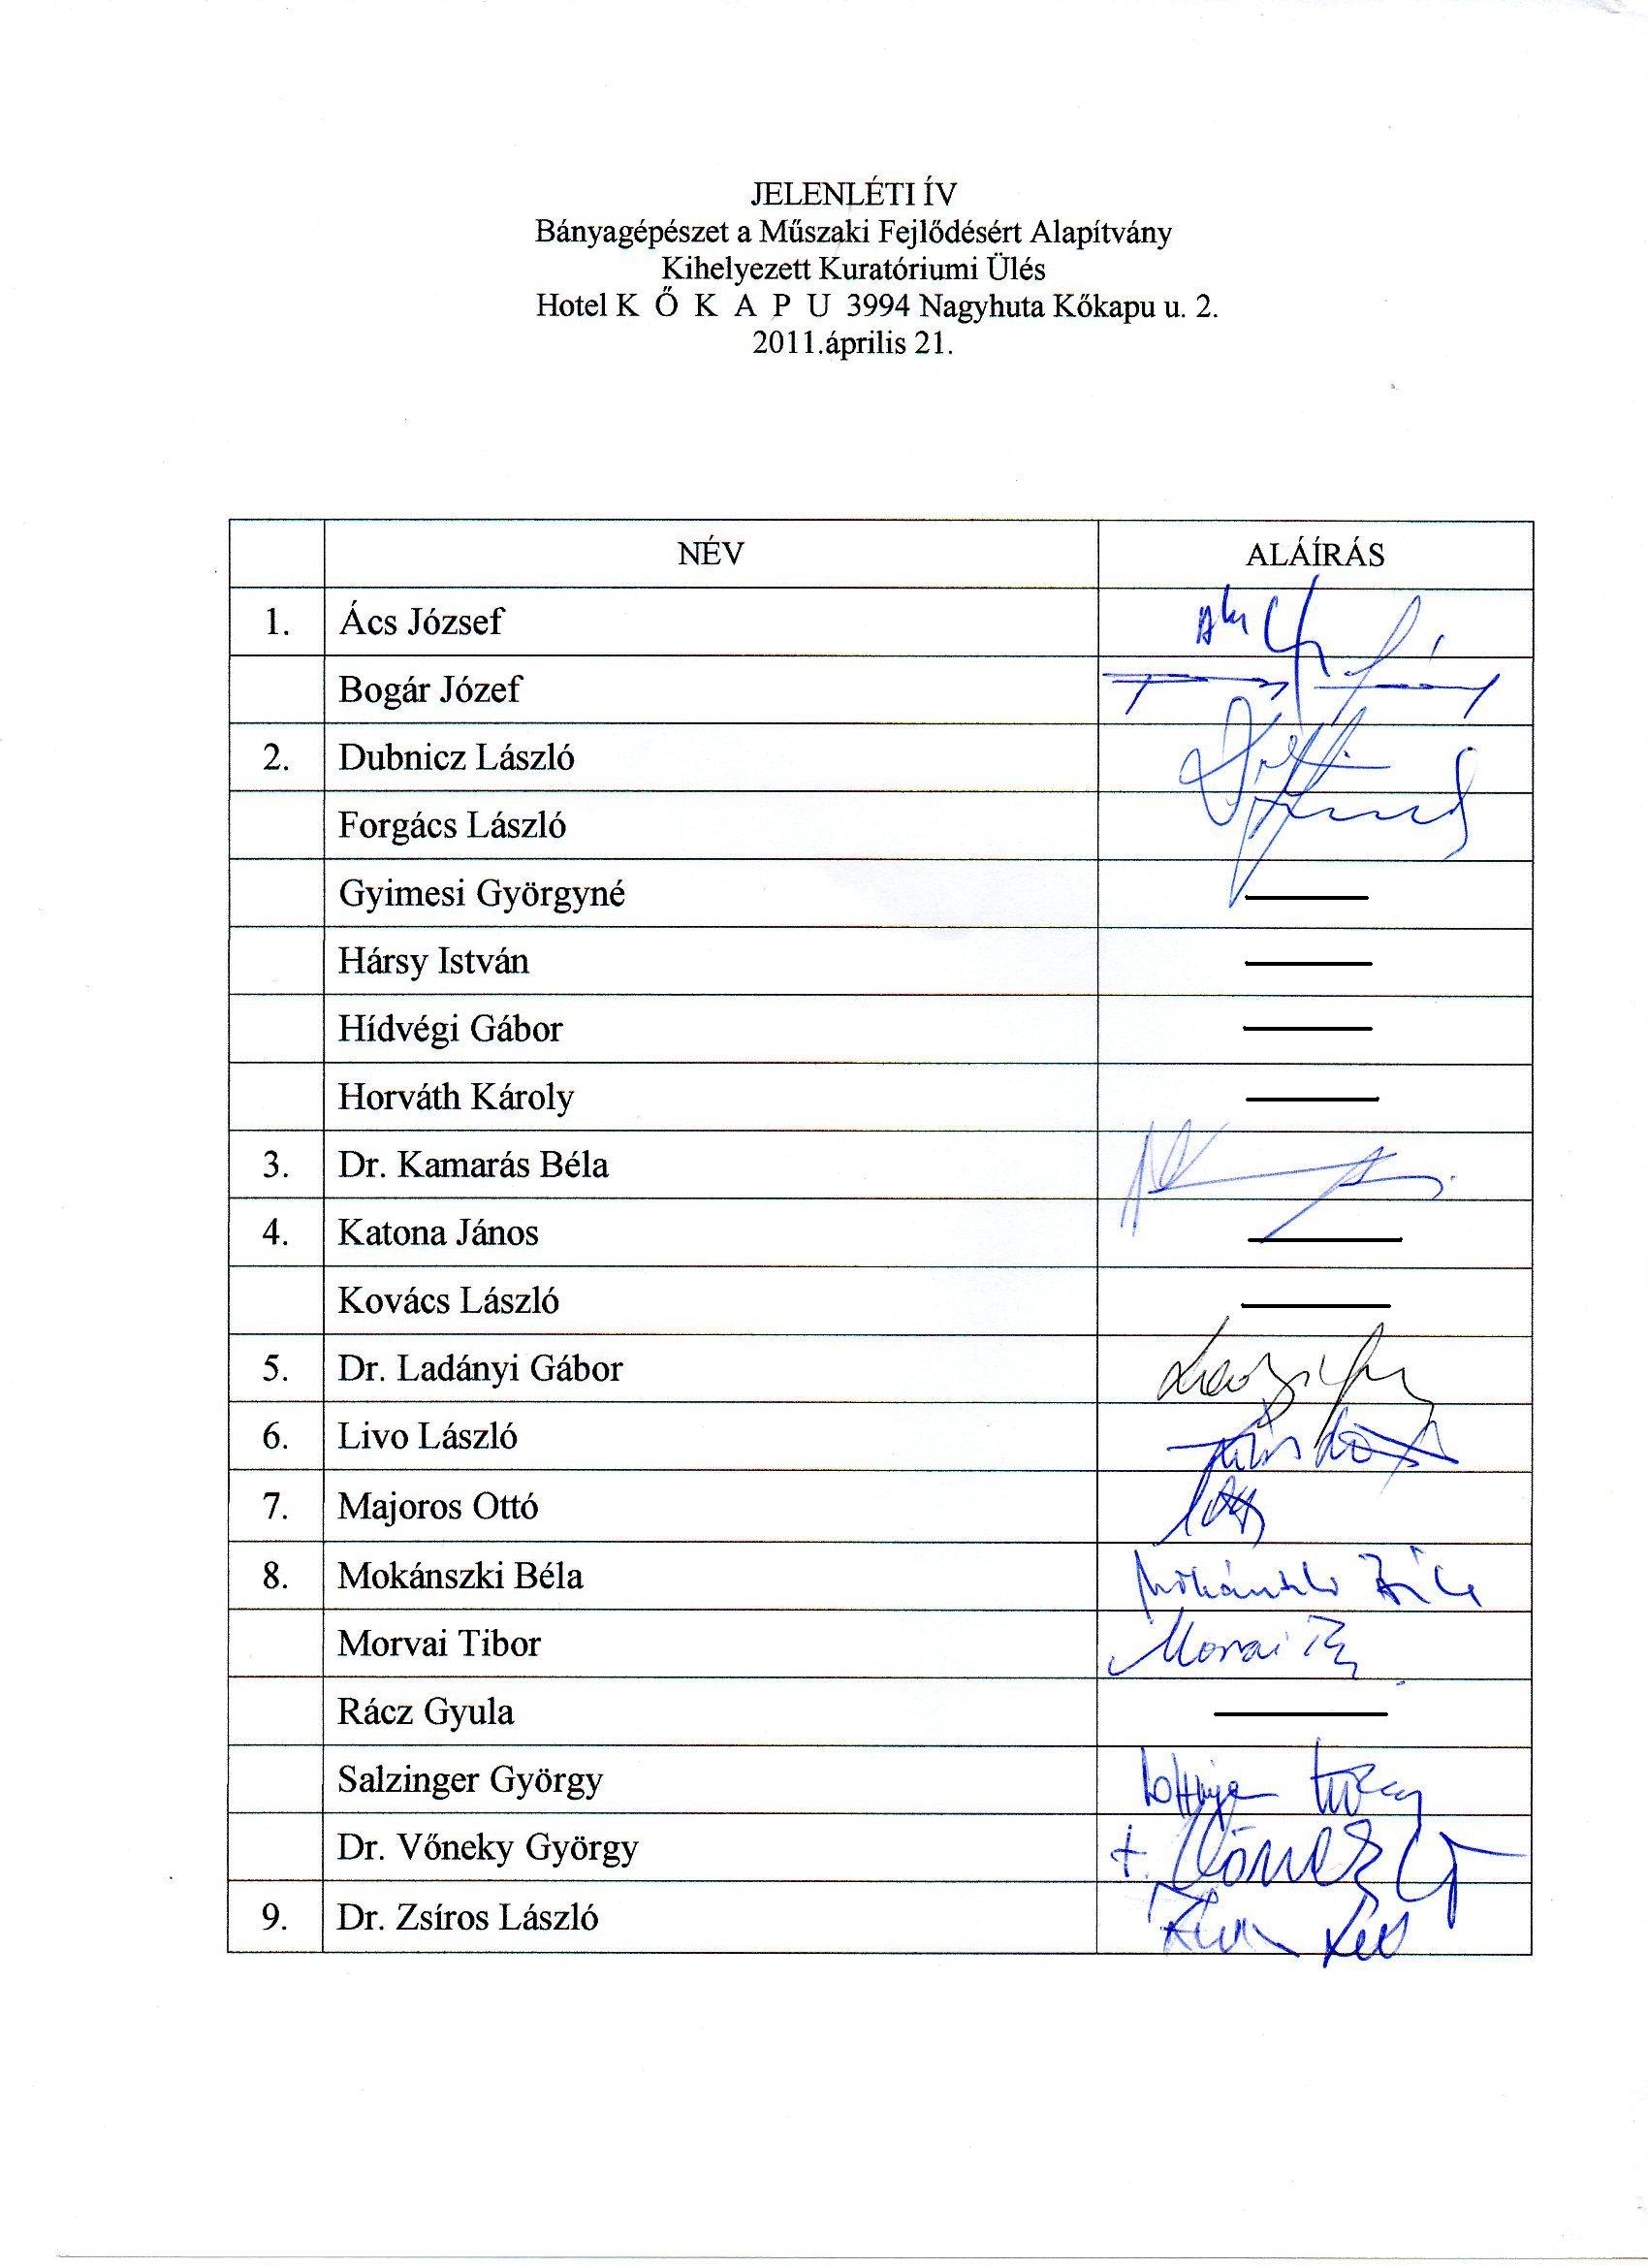 JELENLÉTI ÍV
Bányagépészet a Műszaki Fejlődésért Alapítvány
Kihelyezett Kuratóriumi Ülés
Hotel K Ő K A P U 3994 Nagyhuta Kőkapu u. 2.
2011.április 21.
NÉV ALÁÍRÁS
1. Ács József
Bogár Józef
2. Dubnicz László
Forgács László
Gyimesi Györgyné
Hársy István
Hídvégi Gábor
Horváth Károly
3. Dr. Kamarás Béla
4. Katona János
Kovács László
5. Dr. Ladányi Gábor
6. Livo László
7. Majoros Ottó
8. Mokánszki Béla Mokánszki Béla
Morvai Tibor Morvai
Rácz Gyula
Salzinger György
Dr. Vőneky György
9. Dr. Zsíros László